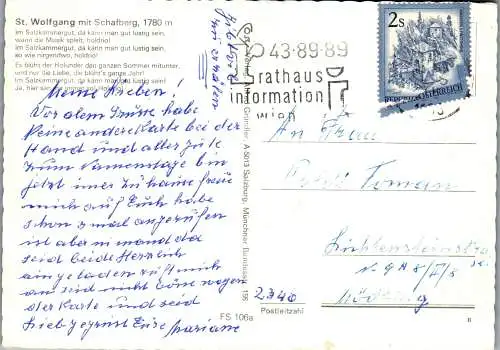 St. Wolfgang mit Schafberg, 1780 m
Im Salzkammergut, da kann man gut lustig sein,
wenn die Musik spielt, holdrio!
Im Salzkammergut, da kann man gut lustig sein,
so wie nirgendwo, holdrio!
Es blüht der Holunder den ganzen Sommer mitunter,
und nur die Liebe, die blüht's ganze Jahr!
Im Salzkammergut, da kann man gut lustig sein
Ja, hier
Meine Lieben!
Vor alem Grüse habe
keine andere Karte bei der
Hand und alles gute
zum Namenstage bin
jetzt imer zu hause freue
mich auf Euch habe
schon mal angerufen
ist aber nimand da
seid beide Herzlich
eingeladen ruft mich
an seid nicht böse wegen
der Karte und seid
Lieb gegrüst Eure Mariane
43·89·89
rathaus
information
wien
2 S
REPUBLIK ÖSTERREICH
An Frau
Toman
N 9 A 8/I/8
2340
Mödling
Postleitzahl
A 5013 Salzburg, Münchner Bundesstr. 156
FS 106a